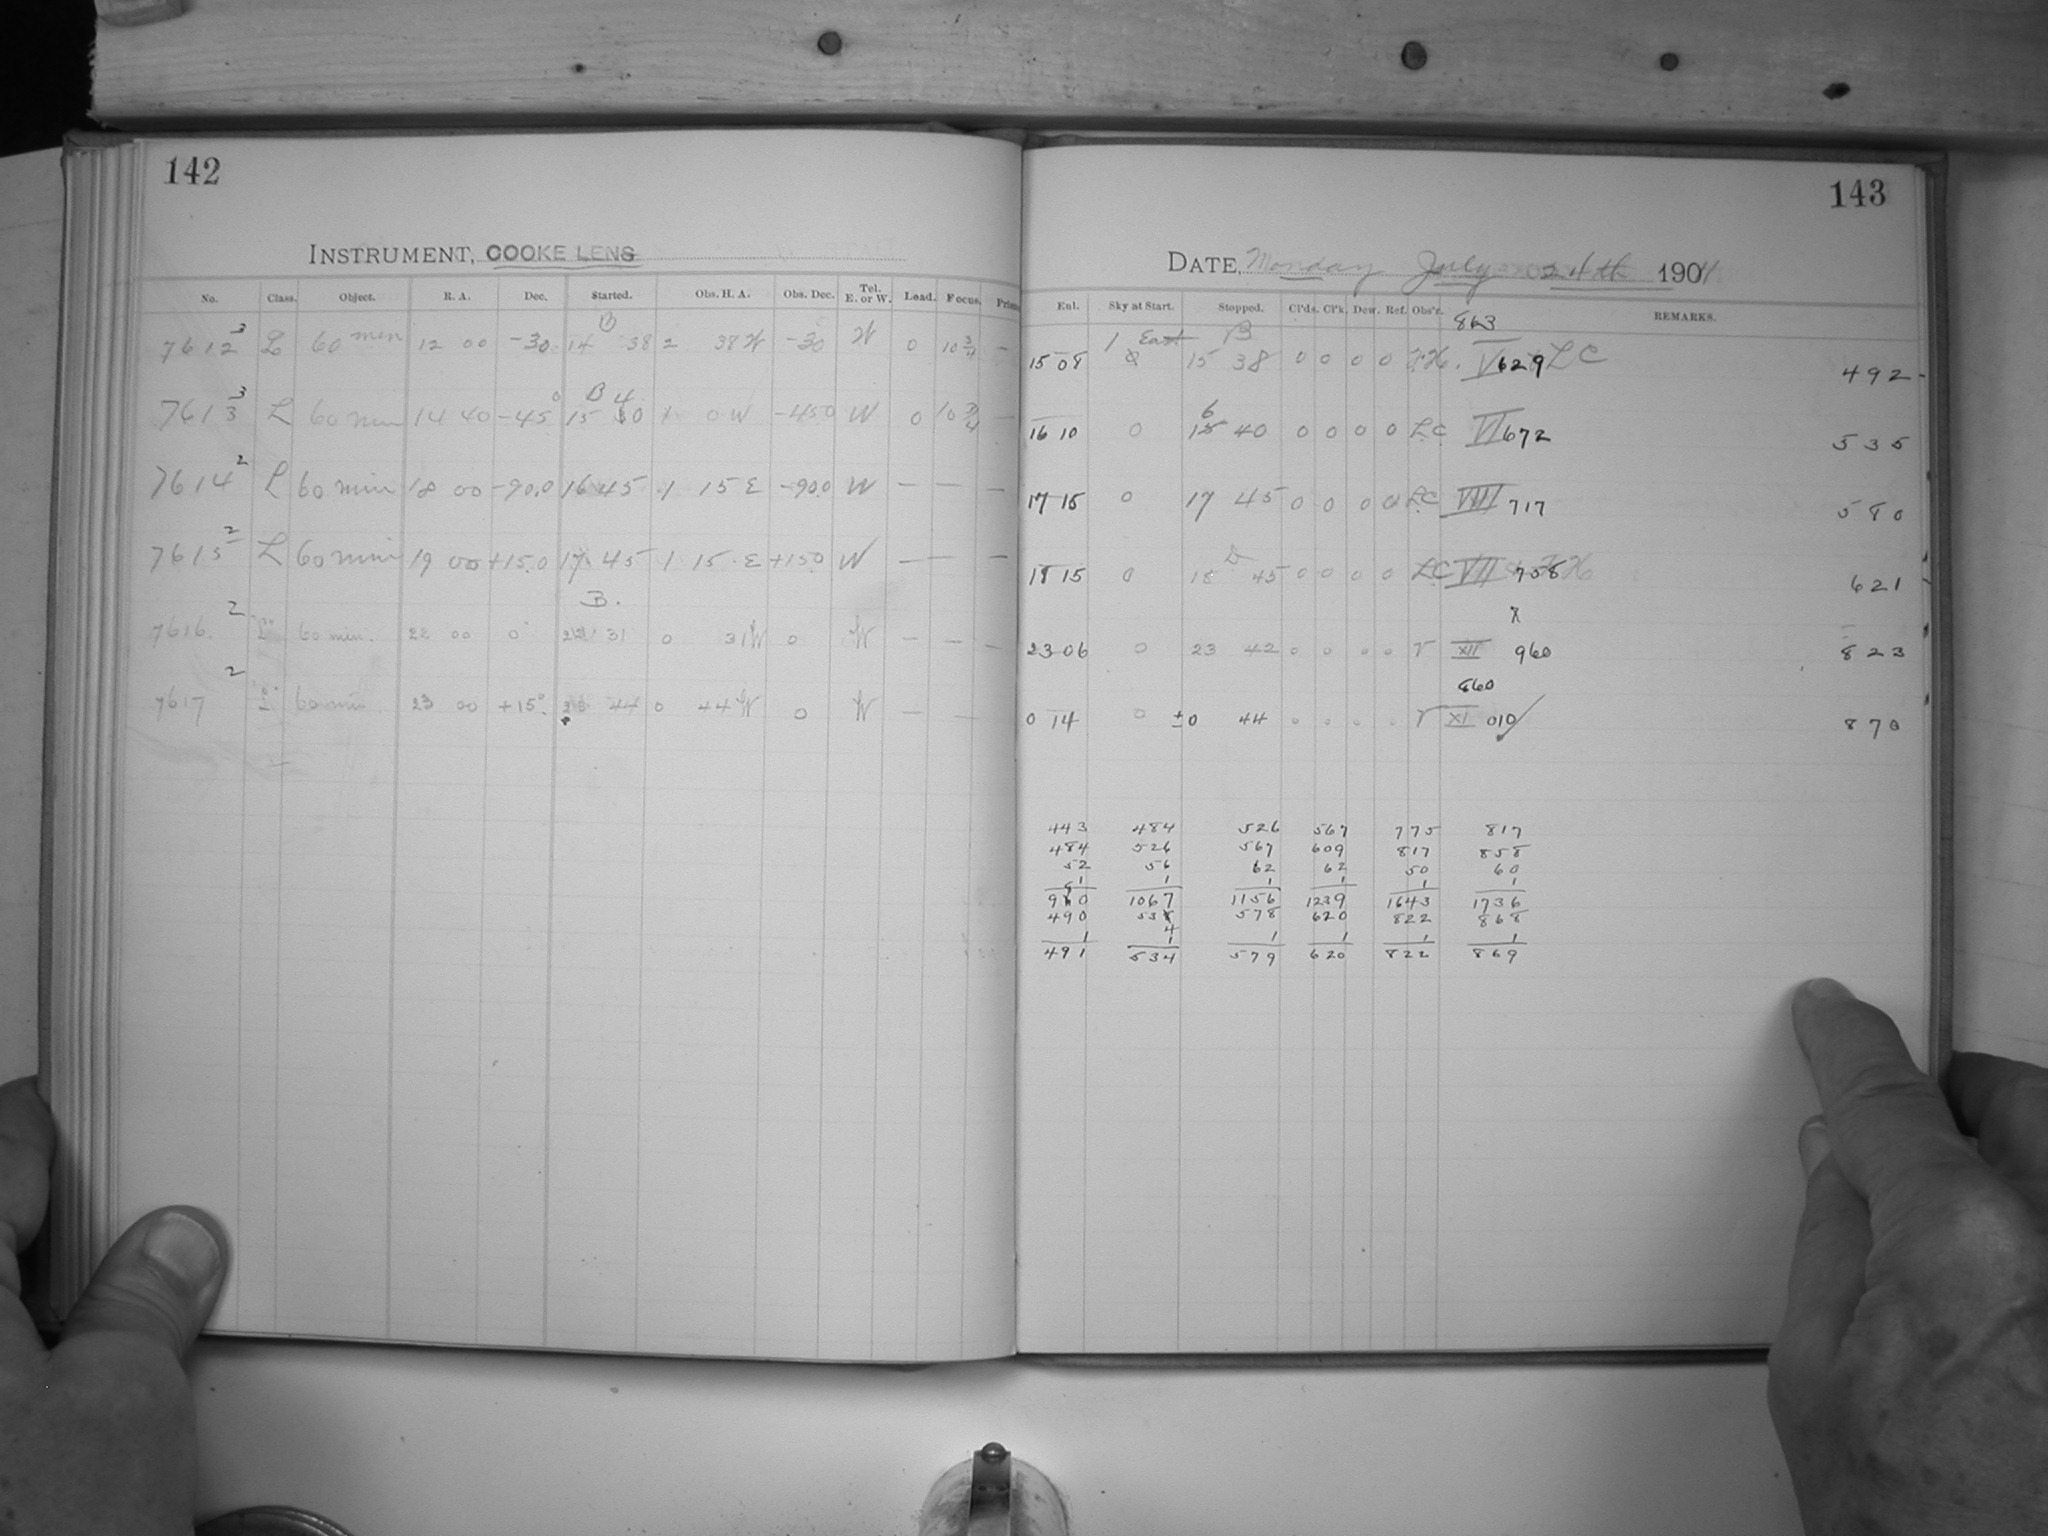 142
INSTRUMENT, COOKE LENS
No. Class. Object. R. A. Dec. Started. Obs. H. A. Obs. Dec. Tel. E. or W. Lead. Focus.
B
7612 3 L 60 min 12 00 -30 14 38 2 38 W -30 W 0 10 3/4 —
B 4
7613 3 L 60 min 14 40 -45 0 15 0 1 0 W -45 0 W 0 10 3/4 —
7614 2 L 60 min 18 00 -90.0 16 45 1 15 E -90.0 W — — —
7615 2 L 60 min 19 00 +15.0 17 45 1 15 E +15.0 W — — —
B.
7616 2 L 60 min. 22 00 0° 22 31 0 31 W 0 W — — —
7617 2 L 60 min. 23 00 +15° 23 44 0 44 W 0 W — —
143
DATE, Monday July 24th 1901
Enl. Sky at Start. Stopped. Cl'ds. Cl'k. Dew. Ref. Obs'r. REMARKS.
863
1 East B
15 08 15 38 0 0 0 0 V 629 LC 492
6
16 10 0 15 40 0 0 0 0 LC VI 672 535
17 15 0 17 45 0 0 0 0 LC VIII 717 580
18 15 0 18 45 0 0 0 0 LC VII 758 621
X
23 06 0 23 42 0 0 0 0 r XII 960 823
860
0 14 0 ±0 44 0 0 0 0 r XI 010 870
443 484 526 567 775 817
484 526 567 609 817 858
52 56 62 62 50 60
1 1 1 1 1 1
980 1067 1156 1239 1643 1736
490 53 578 620 822 868
4
1 1 1 1 1 1
491 534 579 620 822 869